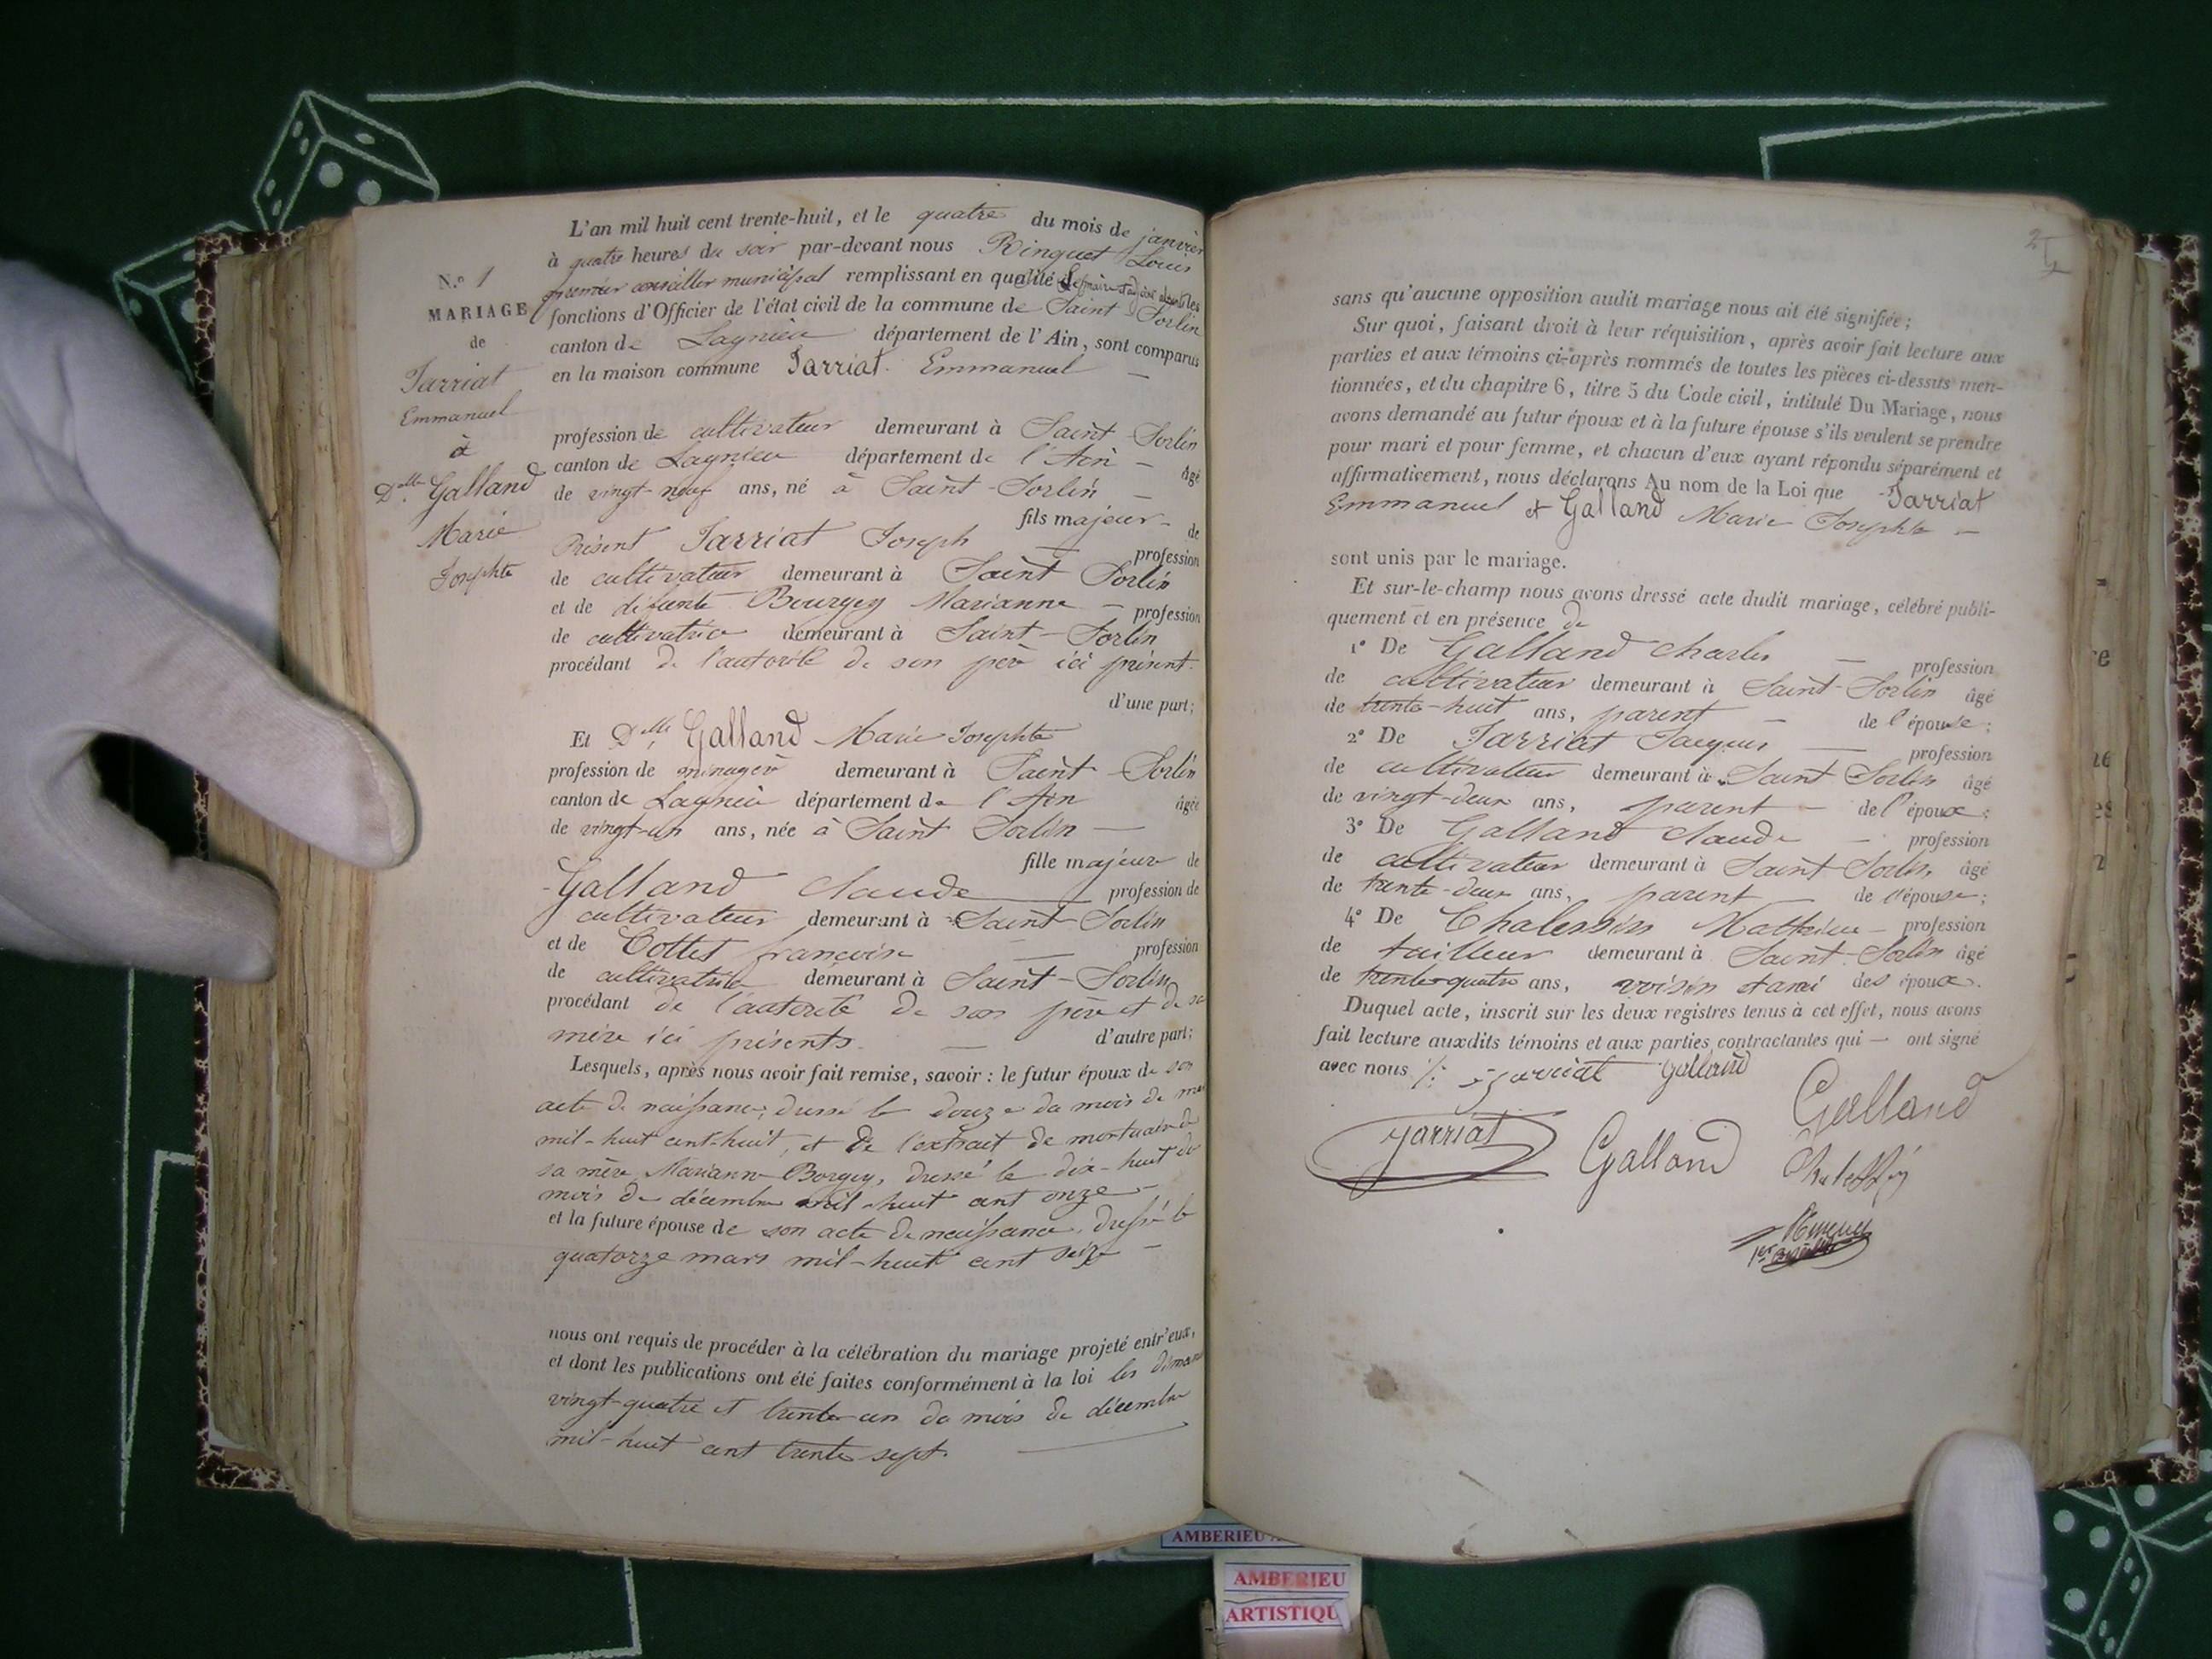 N.° 1
MARIAGE
de
Jarriat
Emmanuel
à
Dlle Galland
Marie
Josephte
L'an mil huit cent trente-huit, et le quatre du mois de janvier
à quatre heures du soir par-devant nous Ringuet Louis
premier conseiller municipal remplissant en qualité de maire et adjoint absents les
fonctions d'Officier de l'état civil de la commune de Saint Sorlin
canton de Lagnieu département de l'Ain, sont comparus
en la maison commune Jarriat Emmanuel —
profession de cultivateur demeurant à Saint Sorlin
canton de Lagnieu département de l'Ain — âgé
de vingt-neuf ans, né à Saint-Sorlin —
fils majeur de
Présent Jarriat Joseph — profession
de cultivateur demeurant à Saint Sorlin
et de défunte Bourgey Marianne — profession
de cultivatrice demeurant à Saint-Sorlin
procédant de l'autorité de son père ici présent.
d'une part;
Et Dlle Galland Marie Josephte
profession de ménagère demeurant à Saint-Sorlin
canton de Lagnieu département de l'Ain âgée
de vingt-un ans, née à Saint Sorlin —
fille majeure de
Galland Claude profession de
cultivateur demeurant à Saint Sorlin
et de Cottet françoise — profession
de cultivatrice demeurant à Saint-Sorlin
procédant de l'autorité de son père et de sa
mère ici présents. — d'autre part;
Lesquels, après nous avoir fait remise, savoir : le futur époux de son
acte de naissance, dressé le douze du mois de
mil-huit cent-huit, et de l'extrait de mortuaire de
sa mère Marianne Borgey, dressé le dix-huit du
mois de décembre mil-huit cent onze —
et la future épouse de son acte de naissance, dressé le
quatorze mars mil-huit cent seize —
nous ont requis de procéder à la célébration du mariage projeté entr'eux,
et dont les publications ont été faites conformément à la loi les
vingt-quatre et trente-un du mois de décembre
mil-huit cent trente sept.
2
sans qu'aucune opposition audit mariage nous ait été signifiée;
Sur quoi, faisant droit à leur réquisition, après avoir fait lecture aux
parties et aux témoins ci-après nommés de toutes les pièces ci-dessus men-
tionnées, et du chapitre 6, titre 5 du Code civil, intitulé Du Mariage, nous
avons demandé au futur époux et à la future épouse s'ils veulent se prendre
pour mari et pour femme, et chacun d'eux ayant répondu séparément et
affirmativement, nous déclarons Au nom de la Loi que Jarriat
Emmanuel et Galland Marie Josephte —
sont unis par le mariage.
Et sur-le-champ nous avons dressé acte dudit mariage, célébré publi-
quement et en présence de
1° De Galland Charles — profession
de cultivateur demeurant à Saint-Sorlin âgé
de trente-huit ans, parent — de l'épouse;
2° De Jarriat Jacques — profession
de cultivateur demeurant à Saint Sorlin âgé
de vingt-deux ans, parent — de l'époux;
3° De Galland Claude — profession
de cultivateur demeurant à Saint Sorlin, âgé
de trente-deux ans, parent de l'épouse;
4° De Mathieu — profession
de tailleur demeurant à Saint-Sorlin âgé
de trente-quatre ans, voisin et ami des époux.
Duquel acte, inscrit sur les deux registres tenus à cet effet, nous avons
fait lecture auxdits témoins et aux parties contractantes qui — ont signé
avec nous /: Jarriat Galland
Galland
Jarriat Galland
AMBERIEU
AMBERIEU
ARTISTIQU